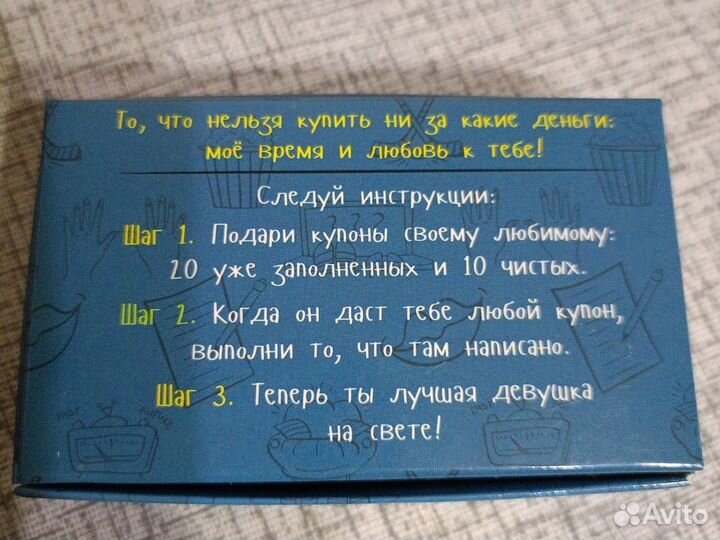 То, что нельзя купить ни за какие деньги:
моё время и любовь к тебе!
Следуй инструкции:
Шаг 1. Подари купоны своему любимому:
20 уже заполненных и 10 чистых.
Шаг 2. Когда он даст тебе любой купон,
выполни то, что там написано.
Шаг 3. Теперь ты лучшая девушка
на свете!
PAST FUTURE
Avito